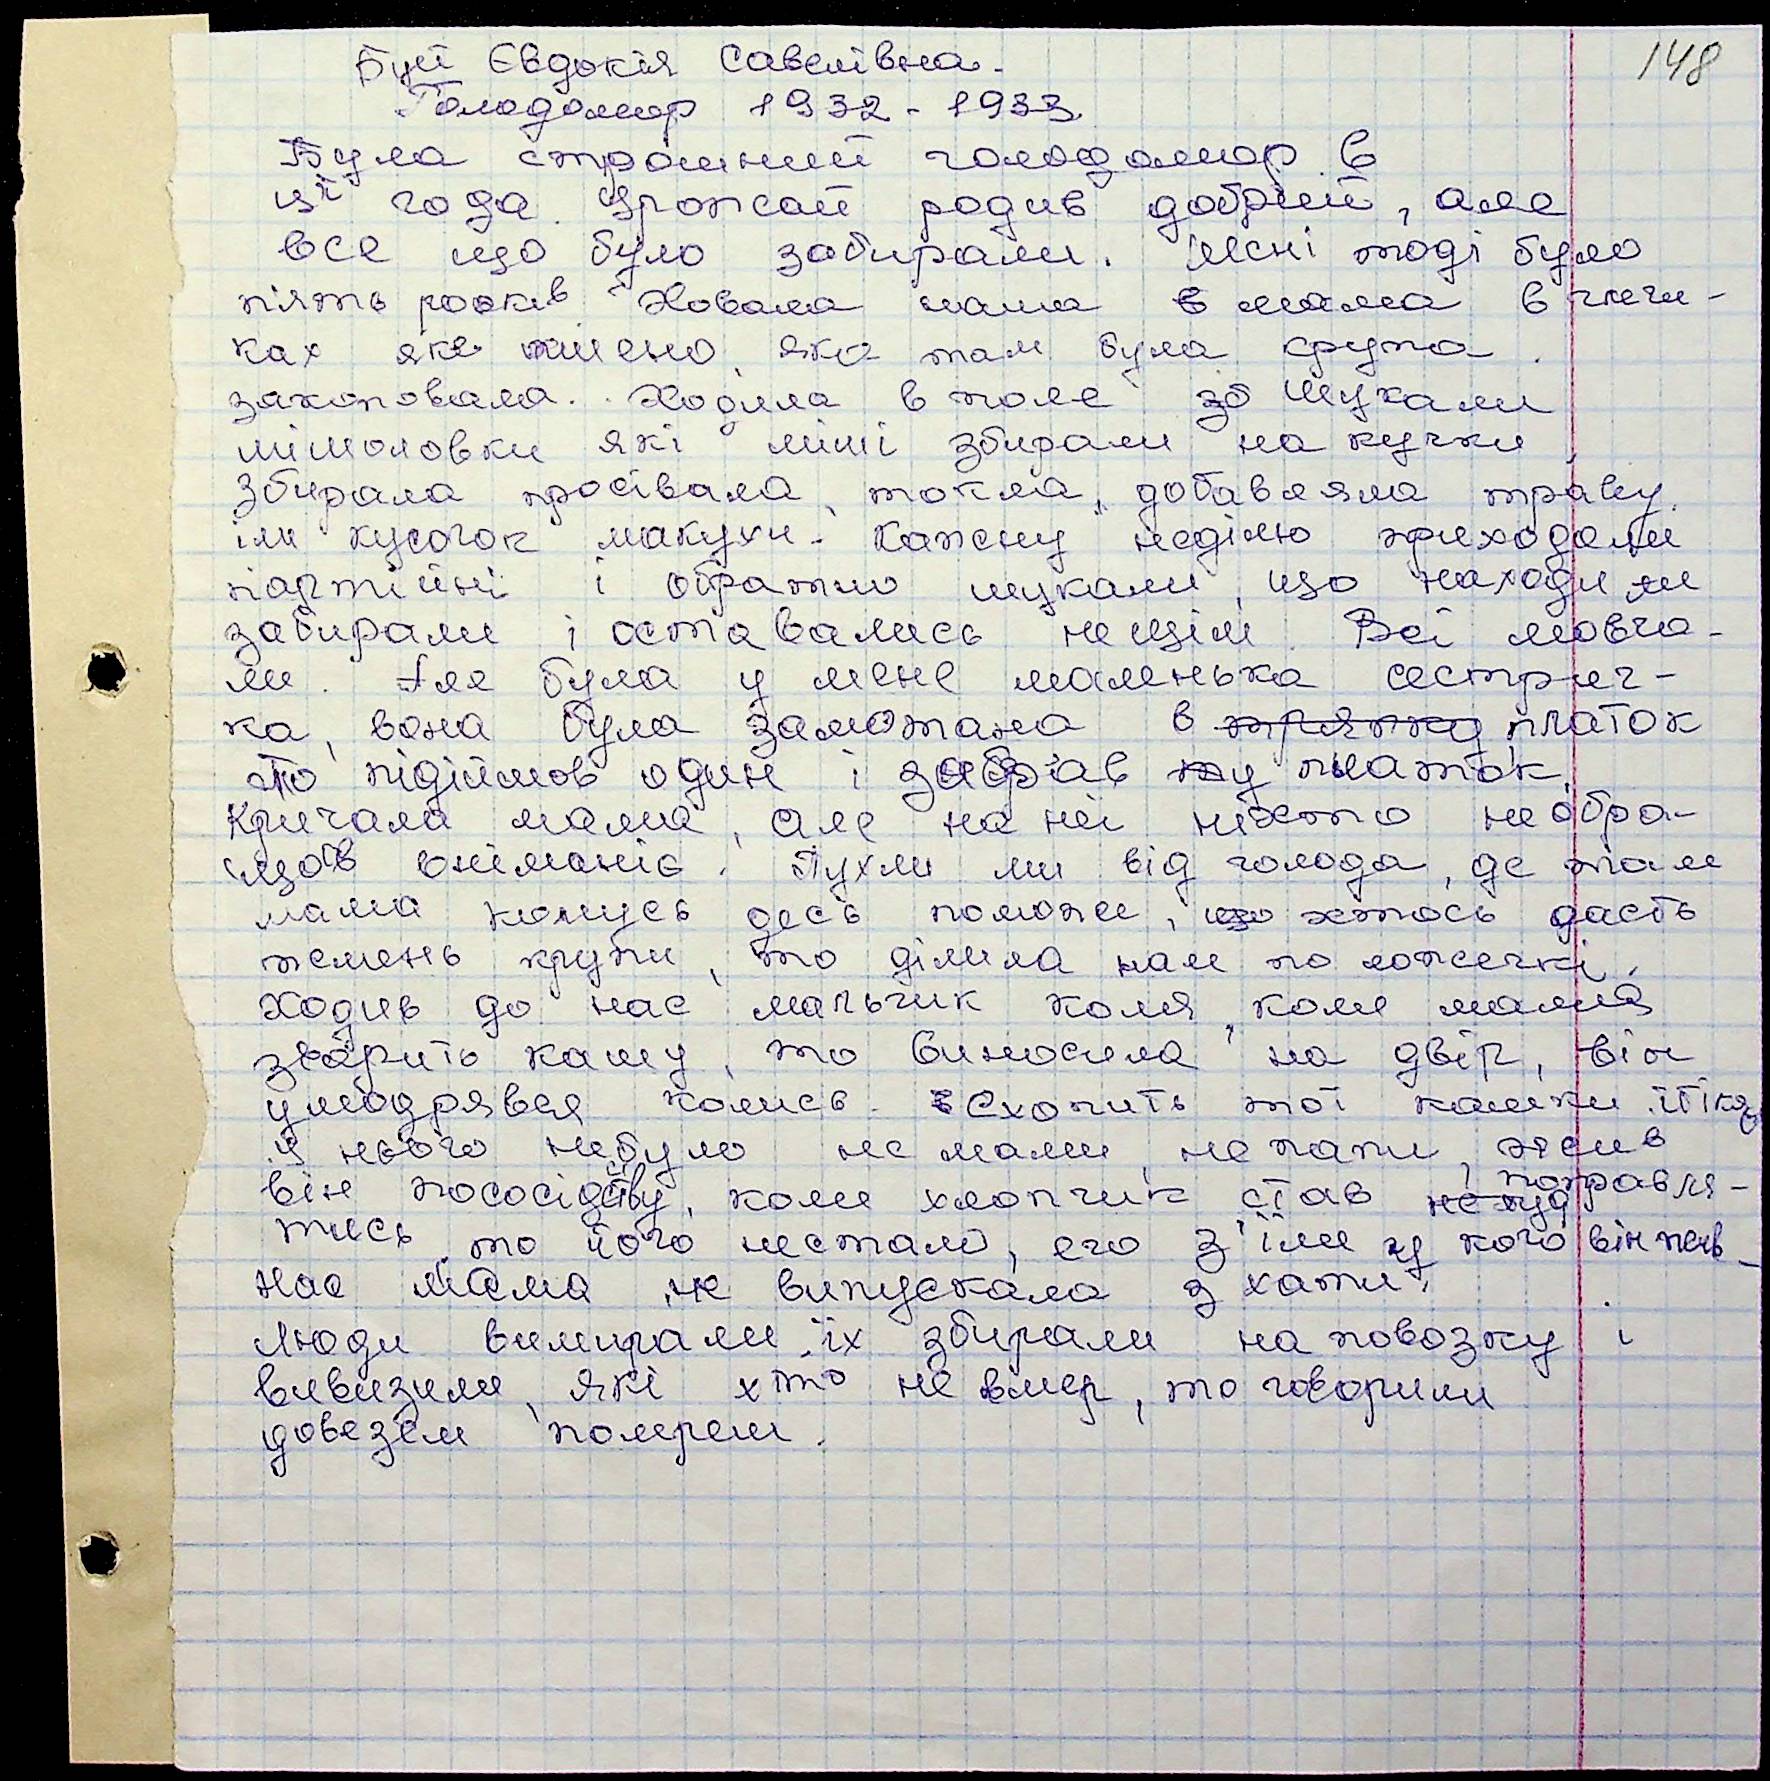 148
Буй Євдокія Савелівна.
Голодомор 1932 - 1933
Була страшний голодомор в
ці года. Урожай родив добрий, але
все що було забирали. Мені тоді було
пять років Ховала мама в
ках яке пшено, яка там була крупа.
закоповала. Ходила в поле шукали
мишоловки які миші збирали на кучки,
збирала просівала, товкла, добавляла траву.
їли кусочок макухи. Кажну неділю приходили
партійні і обратно шукали, що находили
забирали і оставались нещім. Всі мовча-
ли. Але була у мене маленька сестрич-
ка, вона була замотана в тряпку платок
То підійшов один і забрав ту платок.
Кричала мама, але на неї ніхто не обра-
щав вніманіє. Пухли ми від голода, де там
мама комусь десь поможе, що хтось дасть
жмень крупи, то ділила нам по ложечкі.
Ходив до нас мальчик Коля, коли мама
зварить кашу, то виносила на двір, він
умодрявся колись. Схопить тої кашки й тікав
У нього небуло не мами, не папи, жив
він пососідству, коли хлопчик став поправля-
тись, то його нестало, его з'їли у кого він жив
Нас мама не випускала з хати.
Люди вимирали, їх збирали на повозку і
вивизили, які хто не вмер, то говорили
довезем помреш.